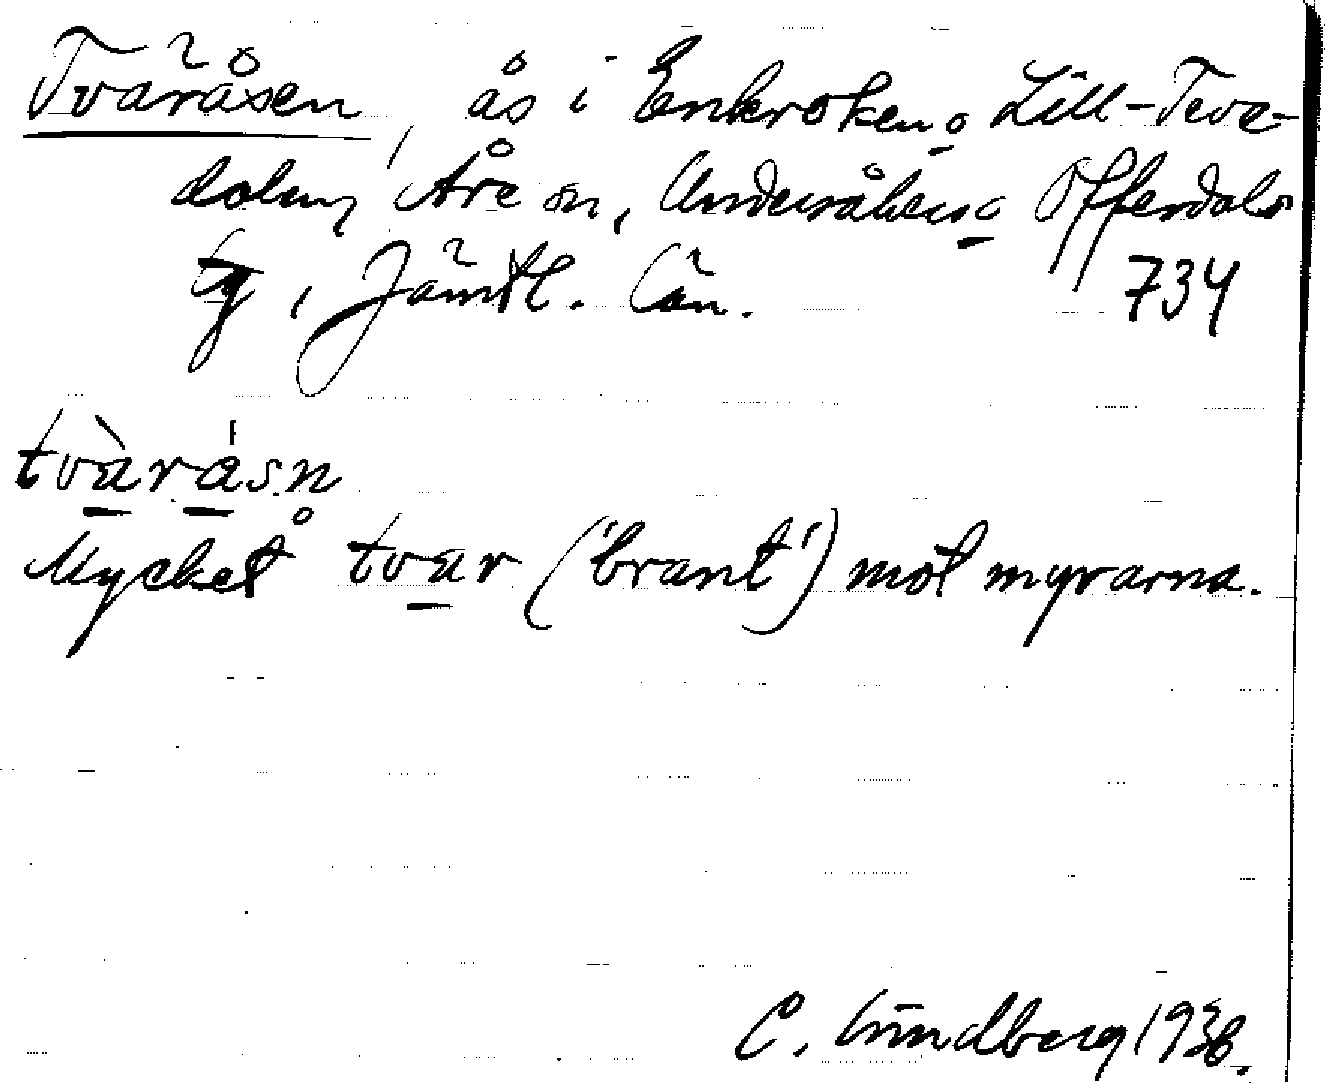 Tväråsen, ås i Enkroken o Lill-Teve-
dalen, Åre sn, Undersåkers o Offerdals
tg, Jämtl. län. 734
tvàrásn
Mycket tvar ('brant') mot myrarna.
C. Lundberg 1938.